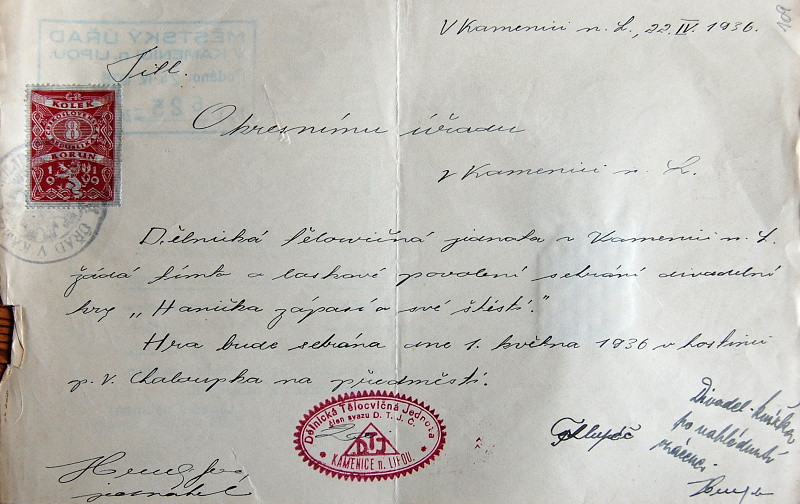 109
V Kamenici n. L., 22. IV. 1936.
MĚSTSKÝ ÚŘAD
V KAMENICI n. LIPOU.
Podáno:
Titl.
ČR
KOLEK
8
KORUN
19 19
ÚŘAD V KA
Okresnímu úřadu
v Kamenici n. L.
Dělnická tělocvičná jednota v Kamenici n. L.
žádá tímto o laskavé povolení sehrání divadelní
hry „Hanička zápasí o své štěstí."
Hra bude sehrána dne 1. května 1936 v hostinci
p. V. Chaloupka na předměstí.
Dělnická Tělocvičná Jednota
člen svazu D. T. J. Č.
DTJ
KAMENICE n. LIPOU.
jednatel
Divadel. knížka
po nahlédnutí
vrácena.